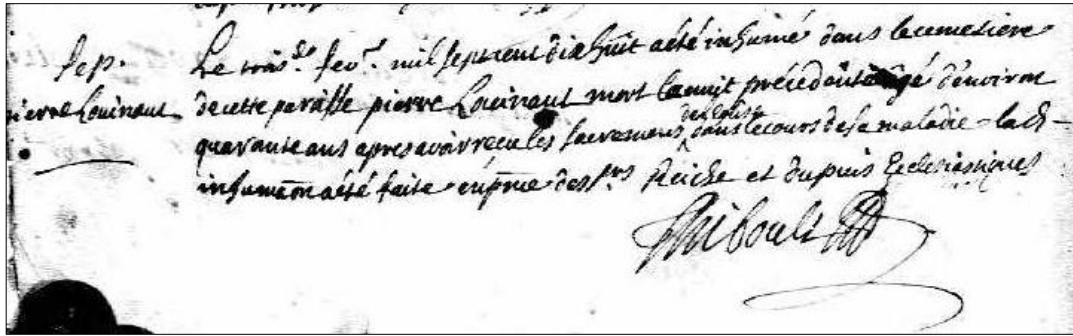 Sep.
pierre Louinaut
Le trois.e fev.r mil sept cent dix huit a été inhumé dans le cemetiere
de cette paroisse pierre Louinaut mort la nuit précédente agé d'environ
quarante ans apres avoir recu les sacremens de l'eglise dans le cours de sa maladie lad.
inhumaōn a été faite en pnce des srs Reiche et dupuis Ecclesiastiques
Thiboult